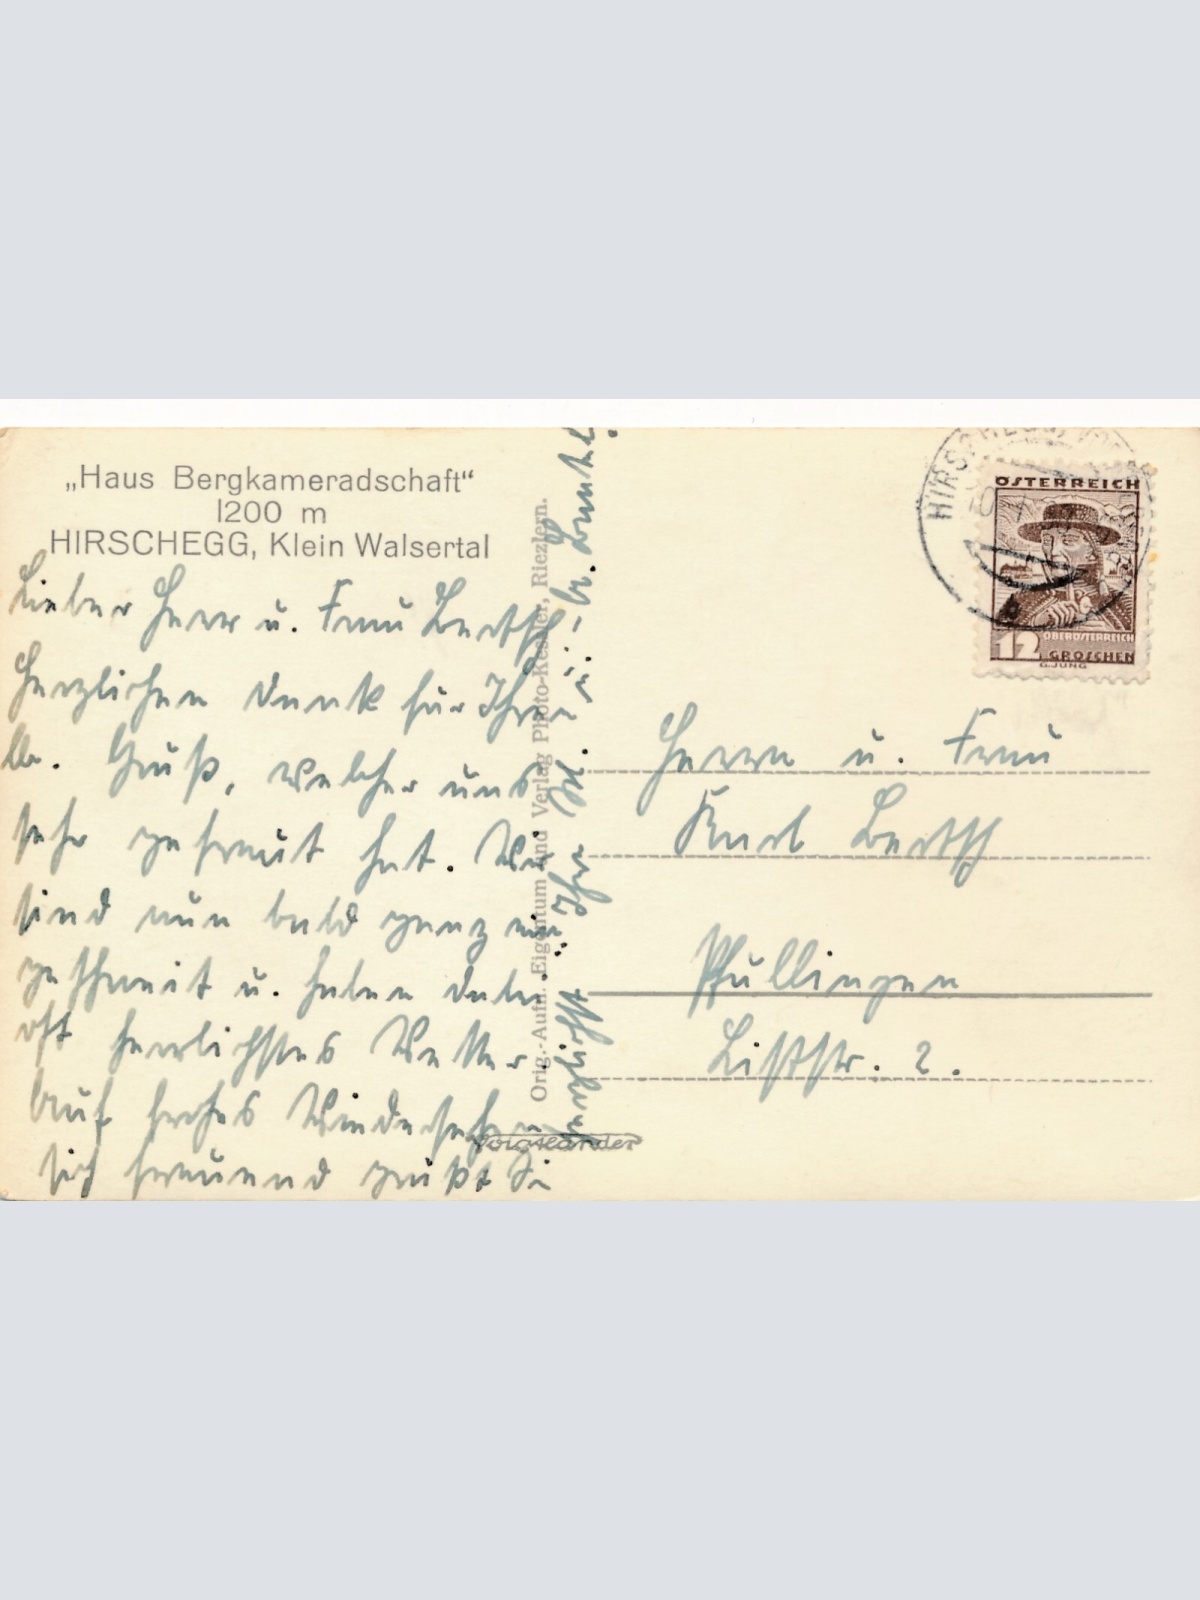 „Haus Bergkameradschaft“
1200 m
HIRSCHEGG, Klein Walsertal
Lieber Herr u. Frau Bertsch
Herzlichen Dank für Ihren
lb. Gruß, welcher uns
sehr gefreut hat. Wir
sind nun bald ganz ein
geschneit u. haben dabei
oft herrlichstes Wetter.
Auf frohes Wiedersehen
sich freuend grüßt Sie
herzlichst Ihre
Orig.-Aufn. Eigentum und Verlag Photo-Kessler, Riezlern.
Voigtländer
HIRSCHEGG
ÖSTERREICH
12
OBERÖSTERREICH
GROSCHEN
G.JUNG
Herrn u. Frau
Karl Bertsch
Pfullingen
Liststr. 2.